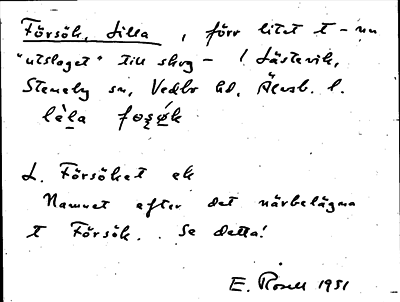 Försök, Lilla, förr litet t - nu
"utslaget" till skog - / Låstevik,
Steneby sn, Vedbo hd, Älvsb. l.
là̱la foşǿ̱k
L. Försöket ek
Namnet efter det närbelägna
t Försök. . Se detta!
E. Rosell 1951